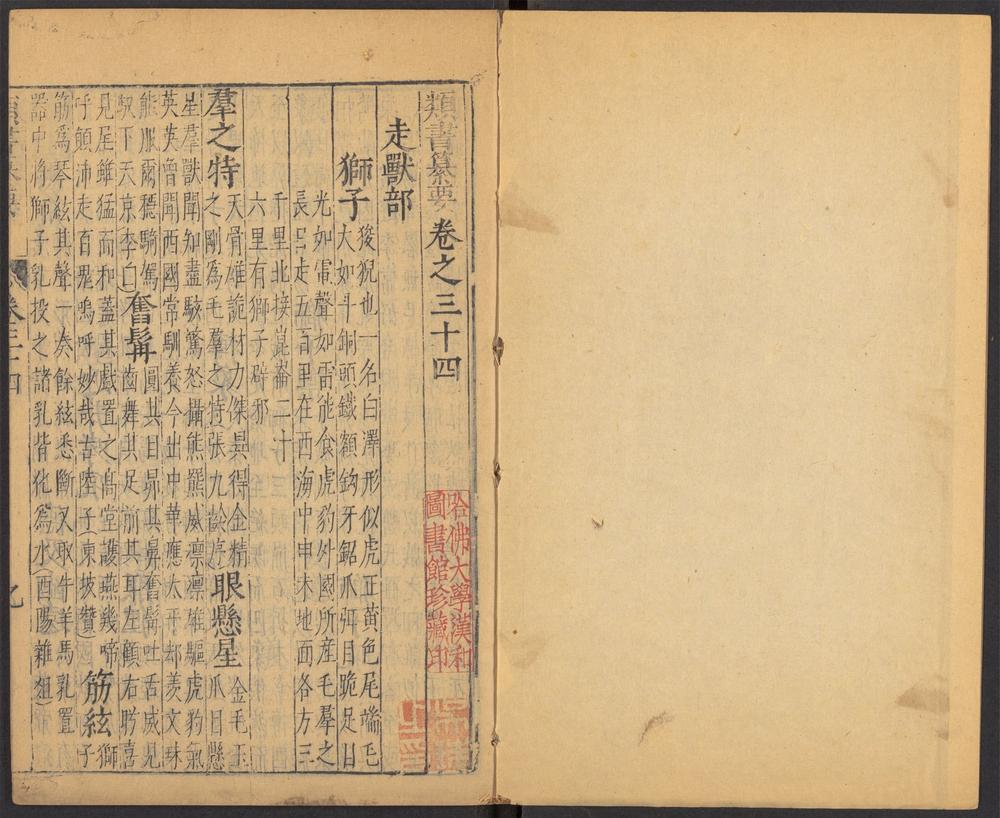 類書纂要卷之三十四
走獸部
獅子
狻猊也一名白澤形似虎正黃色尾端毛
大如斗銅頭鐵額鈎牙鋸爪弭目跪足目
光如電聲如雷能食虎豹外國所産毛羣之
長日走五百里在西海中申未地面各方三
千里北接崑崙二十
六里有獅子辟邪
羣之特
天骨雄詭材力傑異得金精
之剛爲毛羣之特張九齡序
眼懸星
金毛玉
爪目懸
星羣獸聞知盡駭驚怒攝熊羆威凛凛雄驅虎豹氣
英英曾聞西國常馴養今出中華應太平却羨文殊
能服爾穩騎駕
馭下天京李白
奮髯
圓其目昻其鼻奮髯吐舌威見
齒舞其足前其耳左顧右盻喜
見尾雖猛而和蓋其戲置之髙堂護燕幾啼
呼顛沛走百鬼嗚呼妙哉古陸子東坡贊
筋絃
獅
子
筋爲琴絃其聲一奏餘絃悉斷又取牛羊馬乳置
器中將獅子乳投之諸乳皆化爲水酉陽雜俎
卷三十四
哈佛大學漢和
圖書館珍藏印